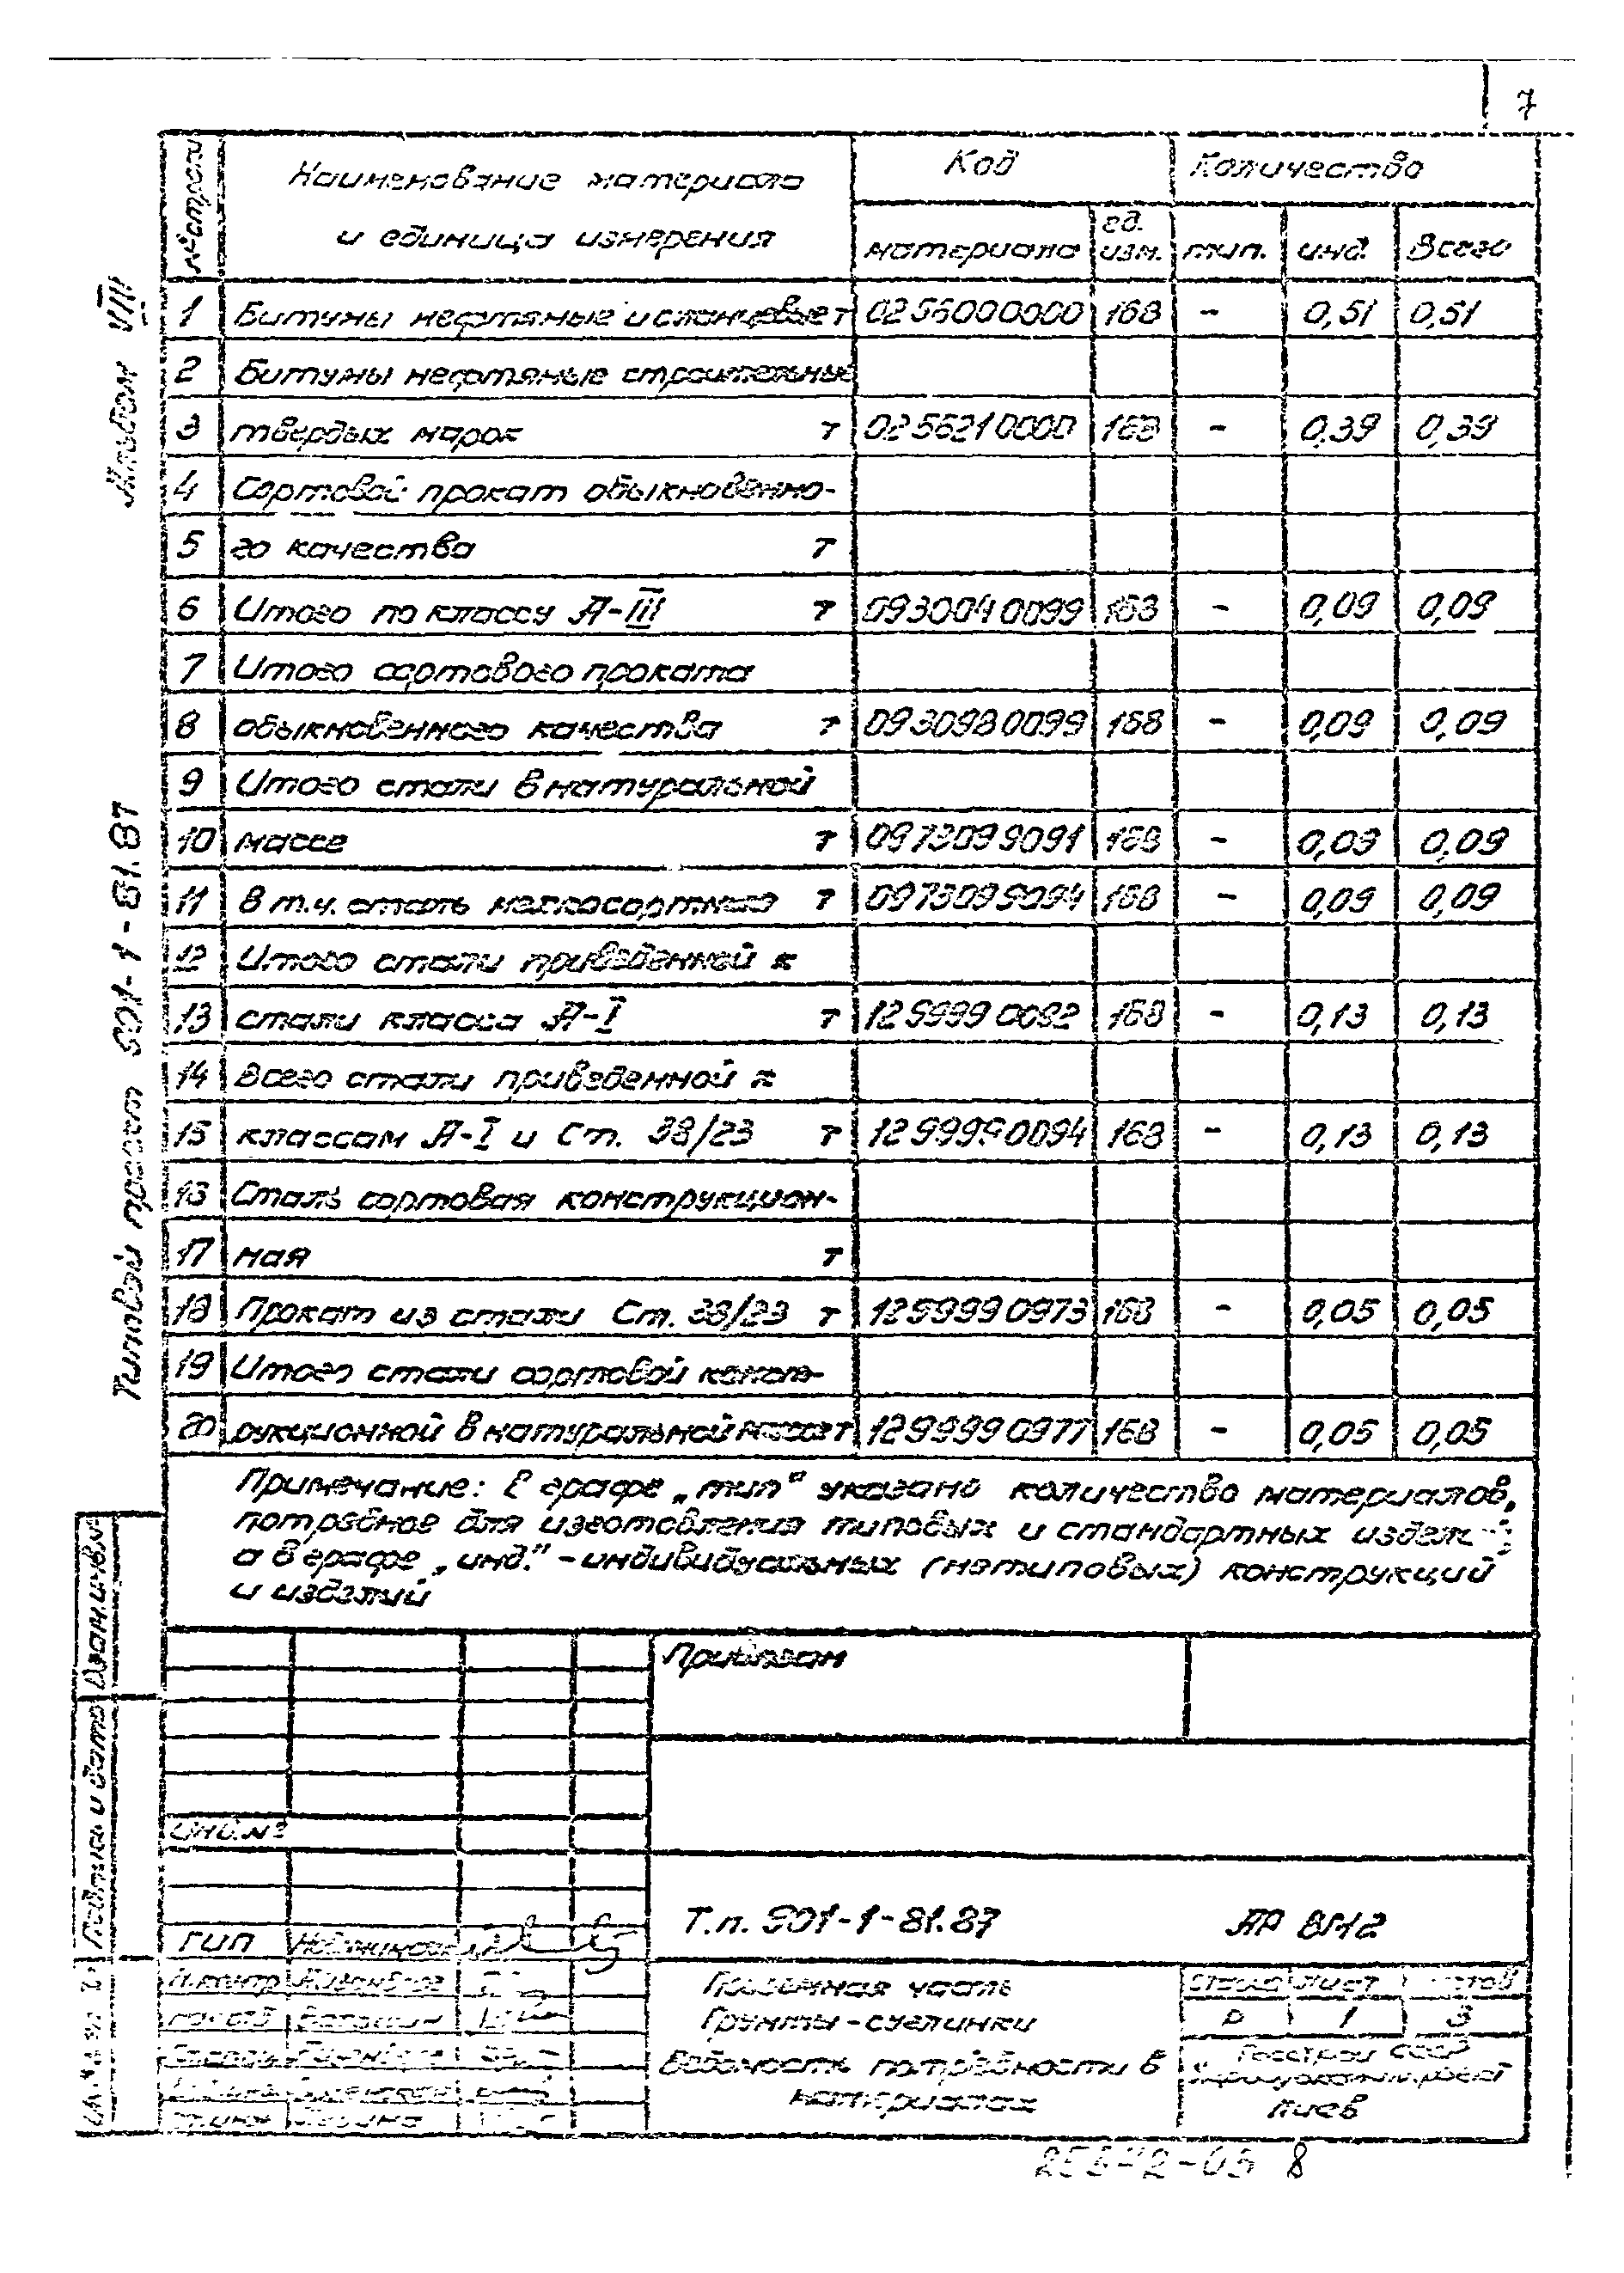 7
№ строки
Наименование материала
и единица измерения
Код
Количество
материала
ед. изм.
тип.
инд.
Всего
1 Битумы нефтяные и сланцевые т 0256000000 168 - 0,51 0,51
2 Битумы нефтяные строительные
3 твердых марок т 0256210000 168 - 0,39 0,39
4 Сортовой прокат обыкновенно-
5 го качества т
6 Итого по классу А-III т 0930040099 168 - 0,09 0,09
7 Итого сортового проката
8 обыкновенного качества т 0930980099 168 - 0,09 0,09
9 Итого стали в натуральной
10 массе т 0973099091 168 - 0,09 0,09
11 В т.ч. сталь мелкосортная т 0973099094 168 - 0,09 0,09
12 Итого стали приведенной к
13 стали класса А-I т 1299990092 168 - 0,13 0,13
14 Всего стали приведенной к
15 классам А-I и Ст. 38/23 т 1299990094 168 - 0,13 0,13
16 Сталь сортовая конструкцион-
17 ная т
18 Прокат из стали Ст. 38/23 т 1299990973 168 - 0,05 0,05
19 Итого стали сортовой конст-
20 рукционной в натуральной массе т 1299990977 168 - 0,05 0,05
Примечание: В графе „тип" указано количество материалов,
потребное для изготовления типовых и стандартных
а в графе „инд." - индивидуальных (нетиповых) конструкций
и изделий
Альбом VIII
Типовой проект 901-1-81.87
Взам.инв.№
Подпись и дата
Привязан
Инв.№
ГИП
Т.п. 901-1-81.87
АР ВМ2
Подземная часть
Грунты-суглинки
Ведомость потребности в
материалах
Стадия Лист Листов
Р 1 3
Госстрой СССР
Киев
8